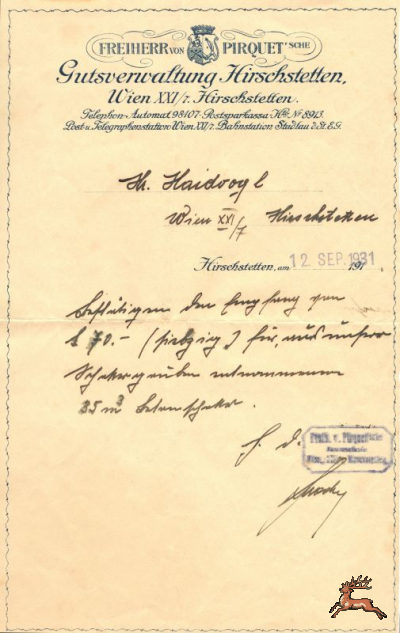 FREIHERR VON PIRQUET'SCHE
Gutsverwaltung Hirschstetten,
Wien XXI/7. Hirschstetten.
Telephon-Automat 98107. Postsparkassa Kto № 8913.
Post- u. Telegraphenstation Wien XXI/7. Bahnstation Stadlau d. St. E. G.
Haidvogl
Wien XXI/7 Hirschstetten
Hirschstetten, am 12 SEP. 1931 191
Bestätigen den Empfang von
S 70.- (siebzig) für, aus unserer
Schottergrube entnommenen
35 m³ Betonschotter.
Freih. v. Pirquet'sche